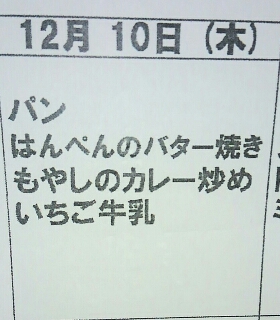 12月 10日 (木)
パン
はんぺんのバター焼き
もやしのカレー炒め
いちご牛乳